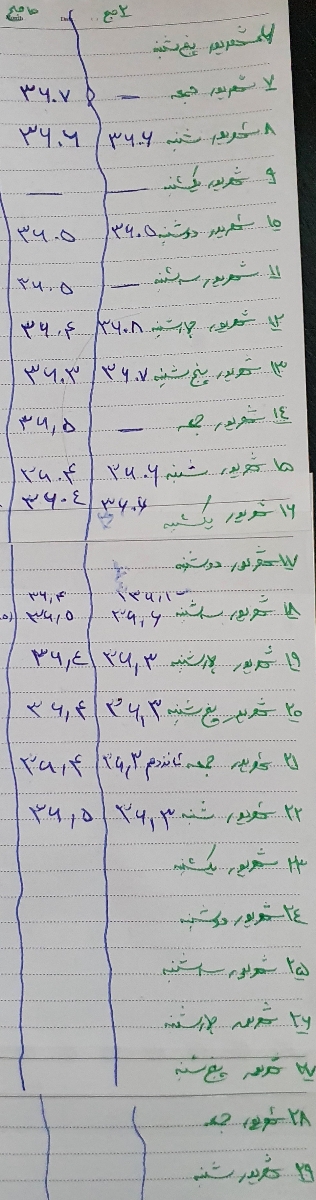 ۲ صبح ۵ صبح
۶ شهریور پنج شنبه
۷ شهریور جمعه — ۳۶.۷
۸ شهریور شنبه ۳۶.۶ ۳۶.۶
۹ شهریور یکشنبه — —
۱۰ شهریور دوشنبه ۳۶.۵ ۳۶.۵
۱۱ شهریور سه شنبه — ۳۶.۵
۱۲ شهریور چارشنبه ۳۶.۸ ۳۶.۴
۱۳ شهریور پنج شنبه ۳۶.۷ ۳۶.۳
۱۴ شهریور جمعه — ۳۶,۵
۱۵ شهریور شنبه ۳۶.۶ ۳۶.۴
۱۶ شهریور یکشنبه ۳۶.۶ ۳۶.٤
۱۷ شهریور دوشنبه
۳۶,۴
۱۸ شهریور سه شنبه ۳۶,۶ ۳۶,۵
۱۹ شهریور چارشنبه ۳۶,۳ ۳۶,٤
۲۰ شهریور پنج شنبه ۳۶,۳ ۳۶,۴
۲۱ شهریور جمعه شانزدهم ۳۶,۳ ۳۶,۴
۲۲ شهریور شنبه ۳۶,۳ ۳۶,۵
۲۳ شهریور یکشنبه
۲٤ شهریور دوشنبه
۲۵ شهریور سه شنبه
۲۶ شهریور چارشنبه
۲۷ شهریور پنج شنبه
۲۸ شهریور جمعه
۲۹ شهریور شنبه